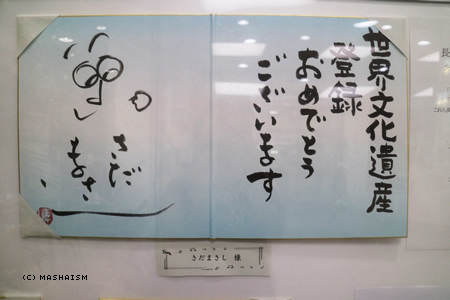 世界文化遺産
登録
おめでとう
ございます
さだ
まさし
さだまさし 様
長
(C) MASHAISM